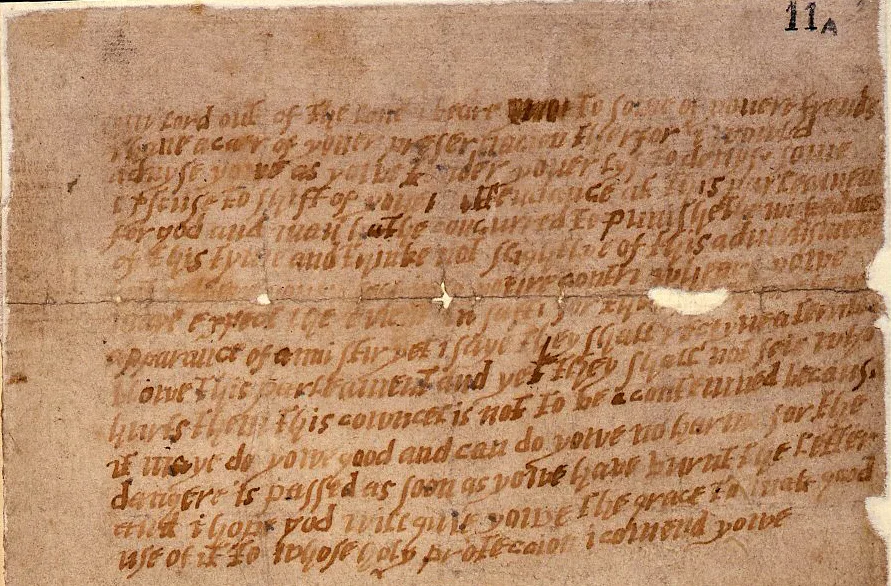 11A
my lord out of the love i beare to some of youere frends
i have a caer of youer preservacion therfor i would
advyse yowe as yowe tender youer lyf to devyse some
excuse to shift of youer attendance at this parleament
for god and man hathe concurred to punishe the wickednes
of this tyme and thinke not slightlye of this advertisment
youre contri wheare yowe
maye expect the event in safti for
apparance of anni stir yet i saye they shall receyve a terrible
blowe this parleament and yet they shall not seie who
hurts them this cowncel is not to be acontemned because
it maye do yowe good and can do yowe no harme for the
dangere is passed as soon as yowe have burnt the letter
and i hope god will give yowe the grace to mak good
use of it to whose holy proteccion i comend yowe